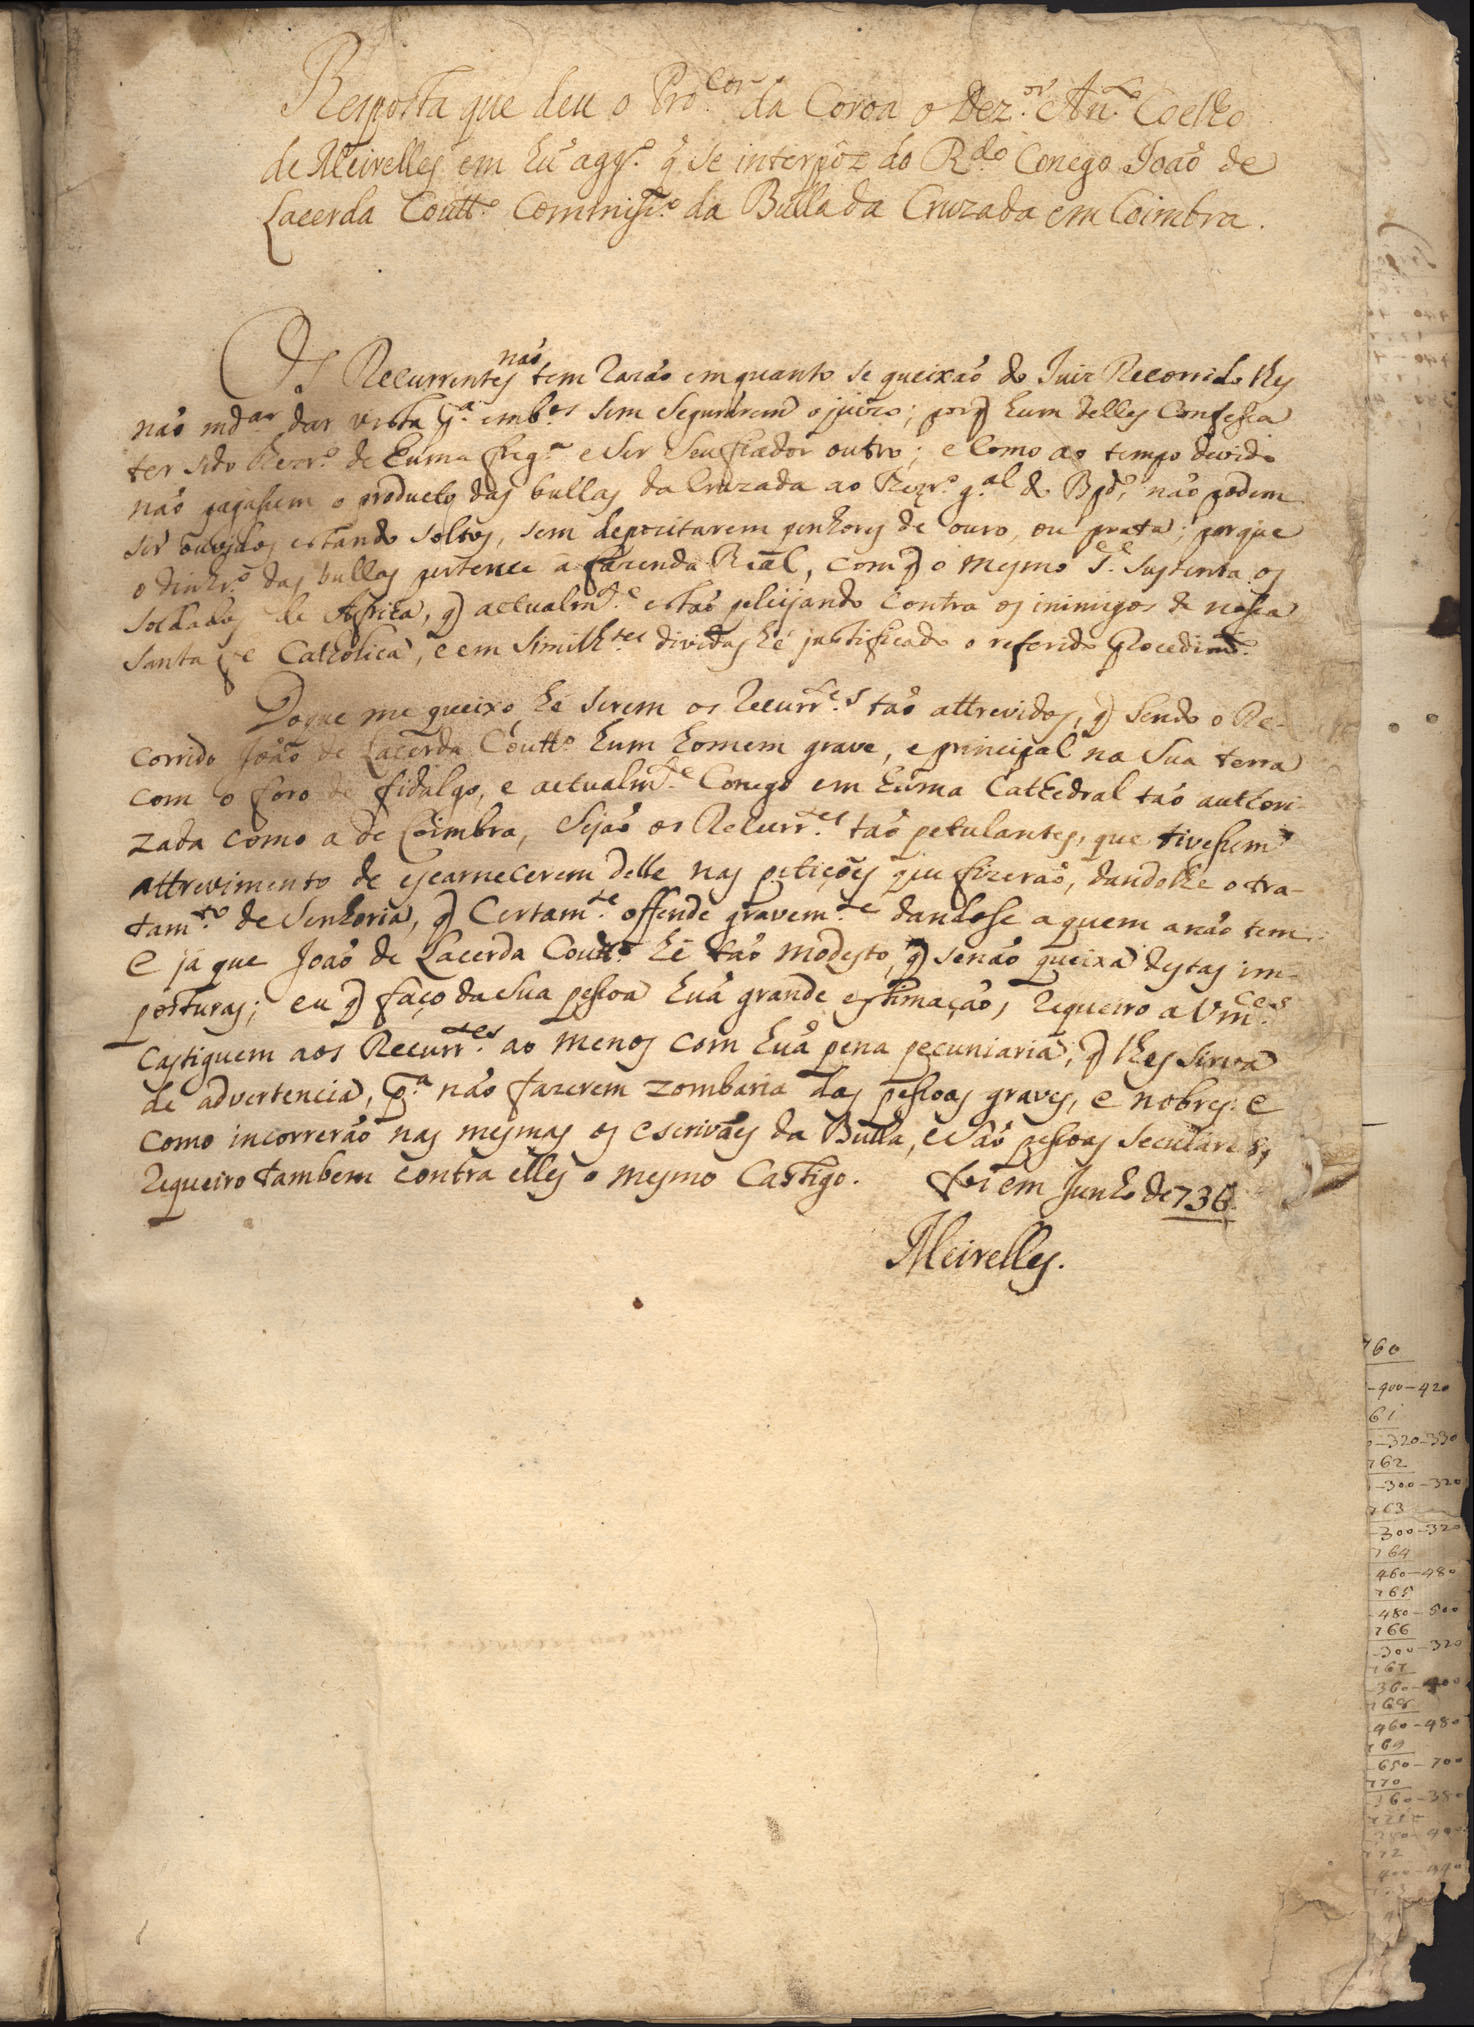 Resposta que deu o Pro.cor da Coroa o Dez.or An.to Coelho
de Meirelles em hu͂ agg.o q̃ se interpôz do R.do Conego João de
Lacerda Coutt.o Commiss.o da Bulla da Cruzada em Coimbra.
Os Recurrentes não tem razão emquanto se queixão do Juiz Recorrido lhes
não md.ar dar vista p.a emb.os sem segurarem o juizo; porq̃ hum delles confessa
ter sido Thezr.o de huma freg.a e ser seu fiador outro; e como ao tempo devido
não pagassem o producto das bullas da Cruzada ao Thezr.o g.al do Bpd.o, não podem
ser ouvidos, estando soltos, sem depozitarem penhores de ouro, ou prata; porque
o dinhr.o das bullas pertence á fazenda Real, com q̃ o mesmo S.r sustenta os
soldados de Africa, q̃ actualm.te estão pelejando contra os inimigos de nossa
santa fe Catholica, e em similh.tes dividas hé justificado o referido procedim.to
Doque me queixo, hé serem os Recurr.tes tão attrevidos, q̃ sendo o Re-
corrido João de Lacerda Coutt.o hum homem grave, e principal na sua terra
com o foro de fidalgo, e actualm.te Conego em huma Cathedral tão authori-
zada como a de Coimbra, sejão os Recurr.tes tão petulantes, que tivessem
attrevimento de escarnecerem delle nas petições que fizerão, dandolhe o tra-
tam.to de Senhoria, q̃ certam.te offende gravem.te dandose a quem a não tem:
E já que João de Lacerda Coutt.o hé tão modesto, q̃ senão queixa destas im-
posturas; eu q̃ faço da sua pessoa huã grande estimação, requeiro a Vm.ces
castiguem aos Recurr.tes ao menos com huã pena pecuniaria, q̃ lhes sirva
de advertencia, p.a não fazerem zombaria das pessoas graves, e nobres: e
como incorrerão nas mesmas os escrivães da Bulla, e são pessoas seculares,
requeiro tambem contra elles o mesmo castigo. foi em Junho de 736.
Meirelles.
760
-400-420
61
-320-330
762
-300-320
763
-300-320
764
460-480
765
-480-500
766
-300-320
767
-360-400
768
460-480
769
-650-700
770
-360-380
772